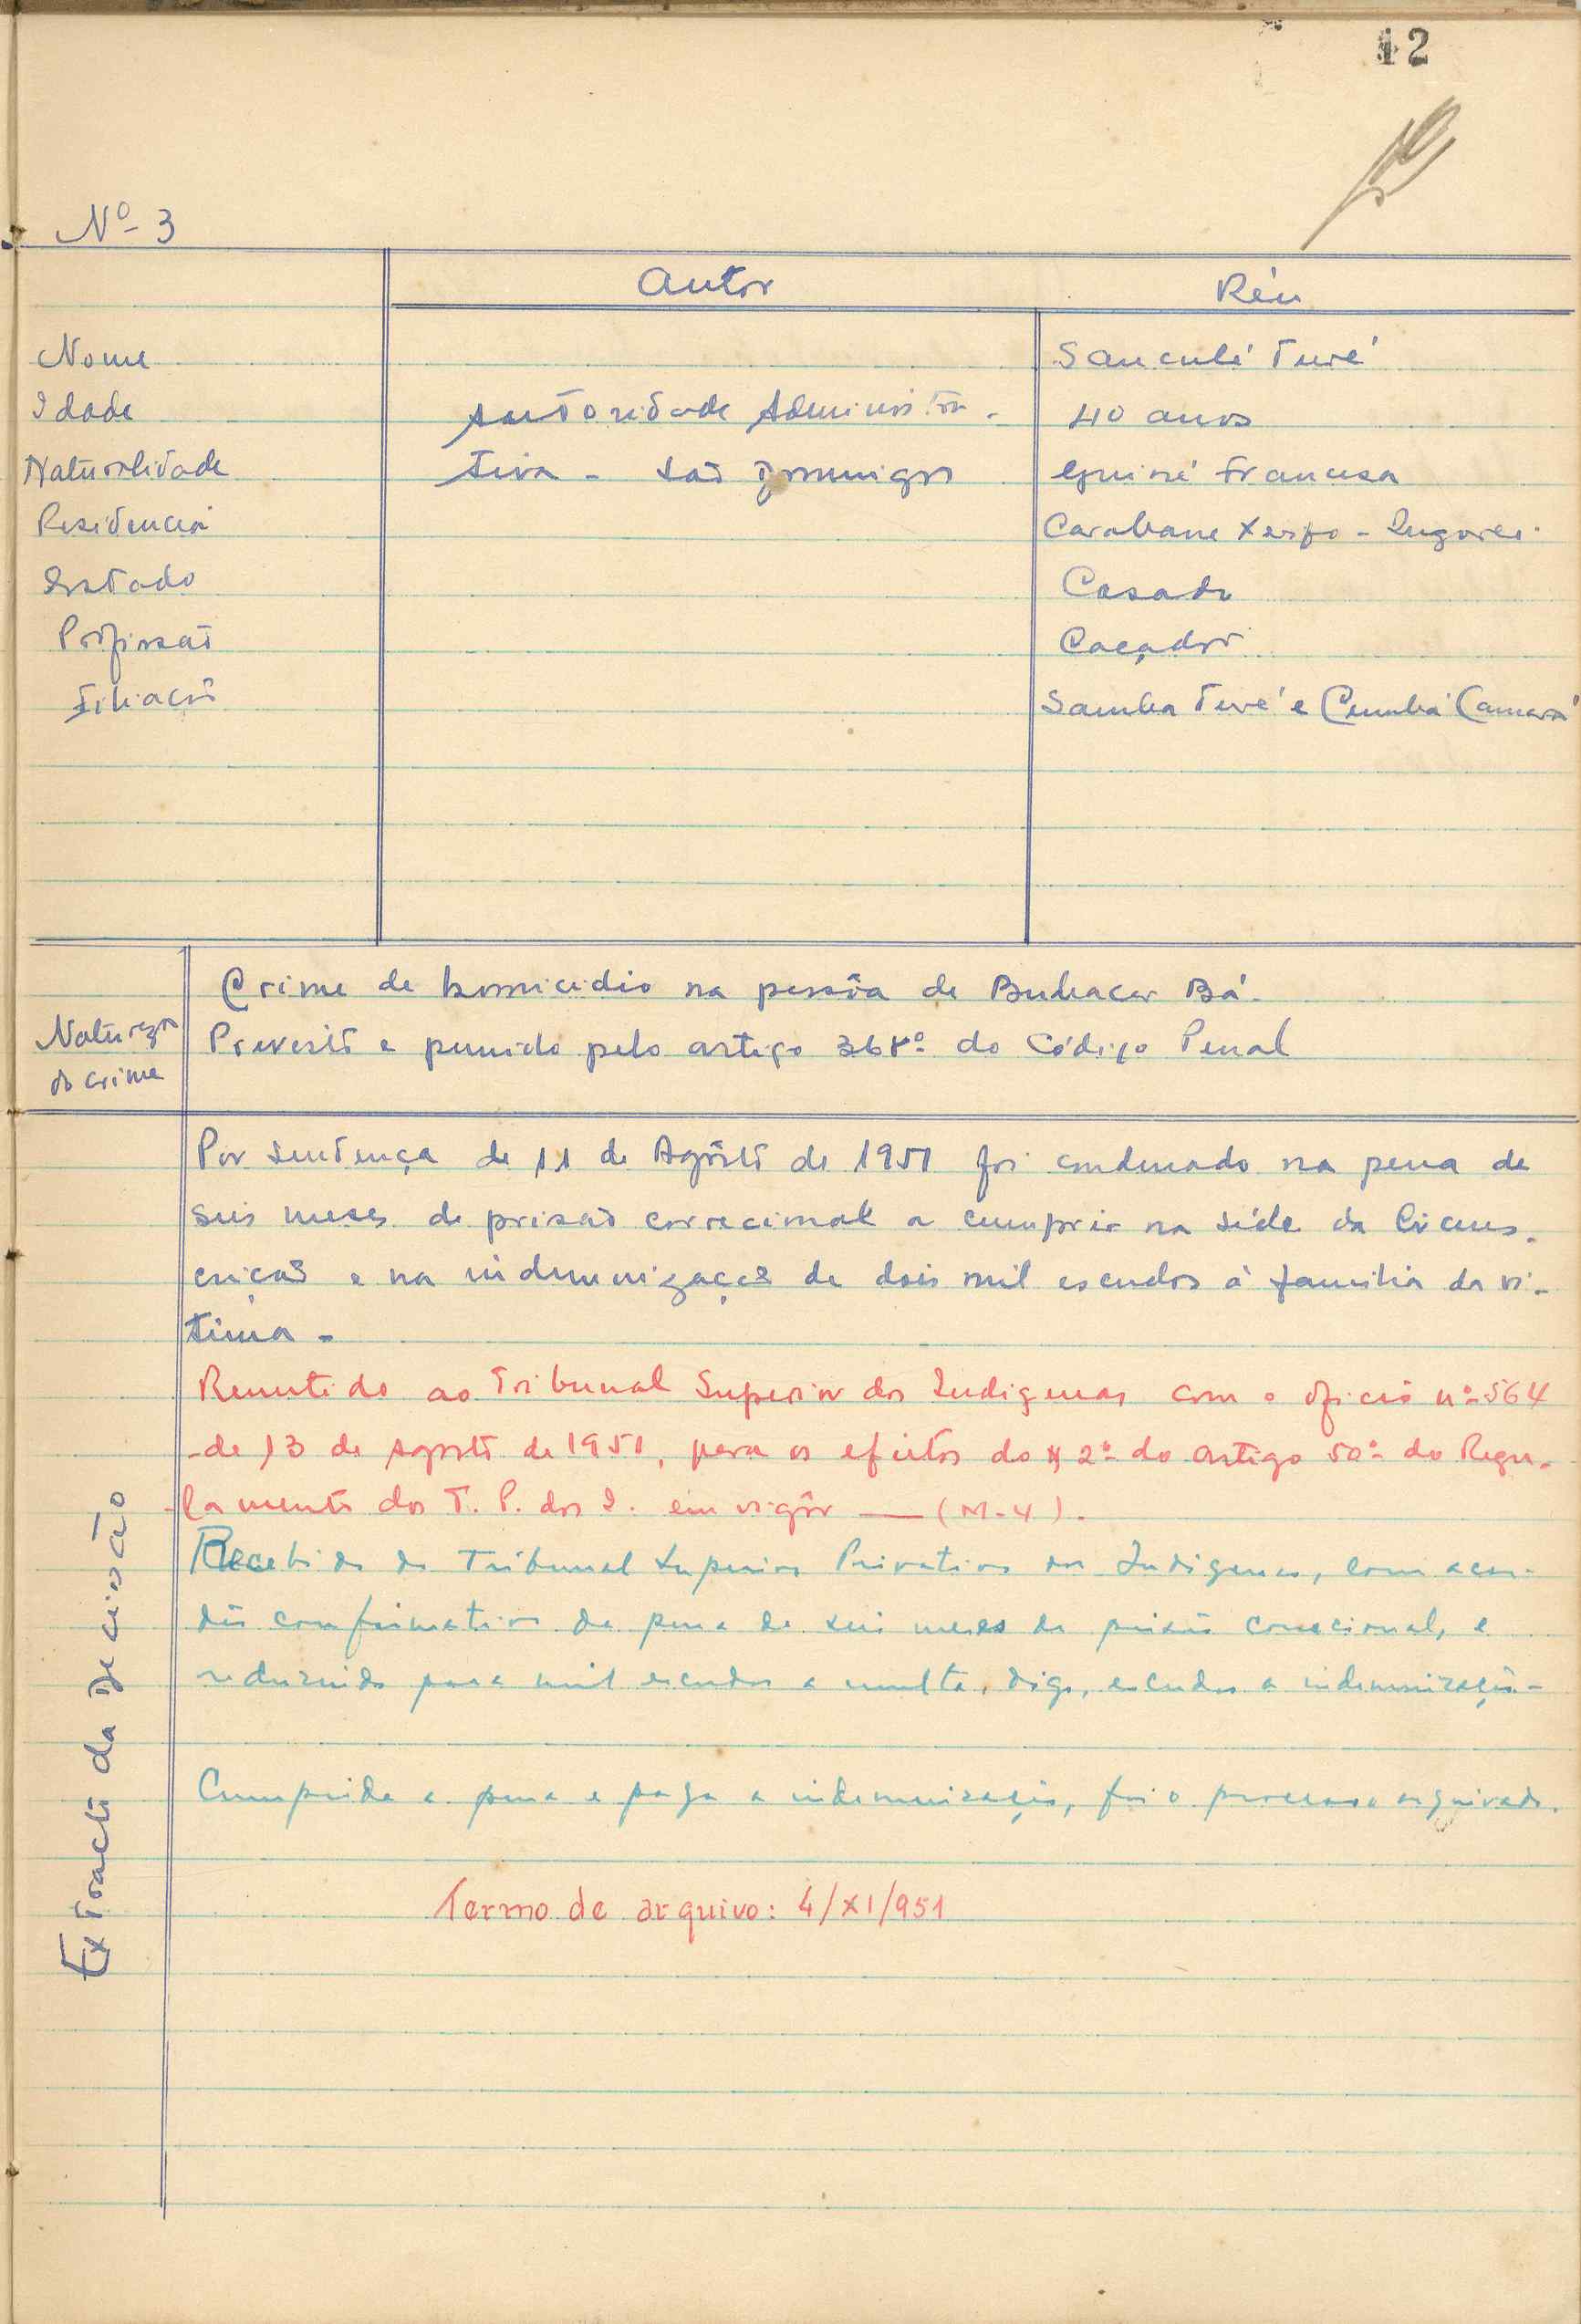 12
Nº 3
Autor Réu
Nome Sanculé Turé
Idade Autoridade Administra- 40 anos
Naturalidade tiva - São Domingos Guiné Francesa
Residencia Carabane - Ingoré
Estado Casado
Profissão Caçador
Filiação Samba Turé e Cumbá Camará
Crime de homicidio na pessôa de Bubacar Bá.
Natureza Previsto e punido pelo artigo 368º do Código Penal
do crime
Por sentença de 11 de Agôsto de 1951 foi condenado na pena de
seis meses de prisão correcional a cumprir na séde da Circuns-
crição e na indemnização de dois mil escudos á familia da vi-
tima -
Remetido ao Tribunal Superior dos Indigenas com o oficio nº 564
de 13 de Agosto de 1951, para os efeitos do § 2º do artigo 50º do Regu-
lamento dos T. P. dos I. em vigôr — (M-4).
Recebido do Tribunal Superior Privativo dos Indigenas, com acor-
dão confirmativo da pena de seis meses de prisão correcional, e
reduzindo para mil escudos a multa, digo, escudos a indemnização -
Cumprida a pena e paga a indemnização, foi o processo arquivado.
Termo de arquivo: 4/XI/951
Extracto da Decisão